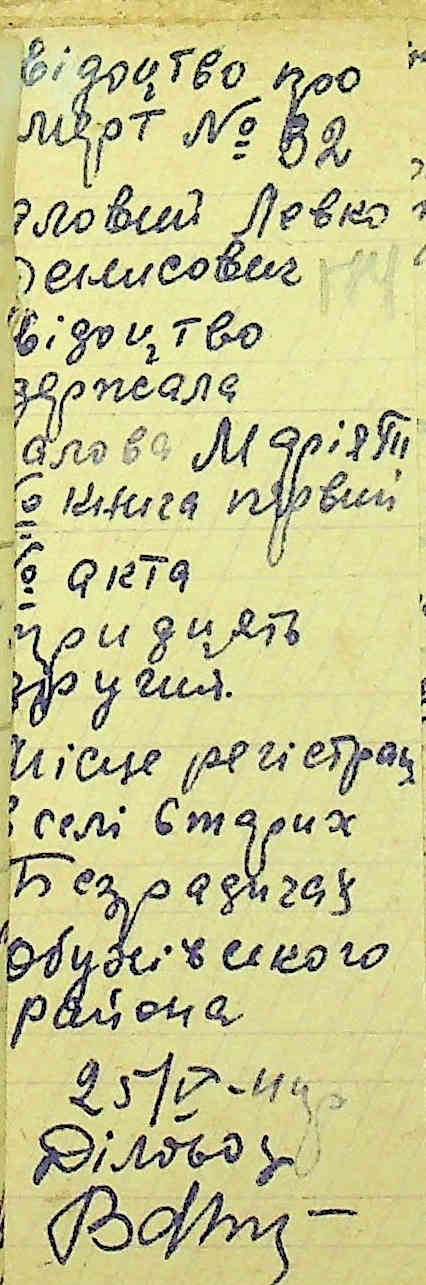 відоцтво про
мерт № 32
ловий Левко
енисович
відоцтво
держала
алова Марія
№ книга первий
№ акта
тридцять
другий.
місце регістрац
в селі Старих
Безрадичах
Обухівського
района
25/V-